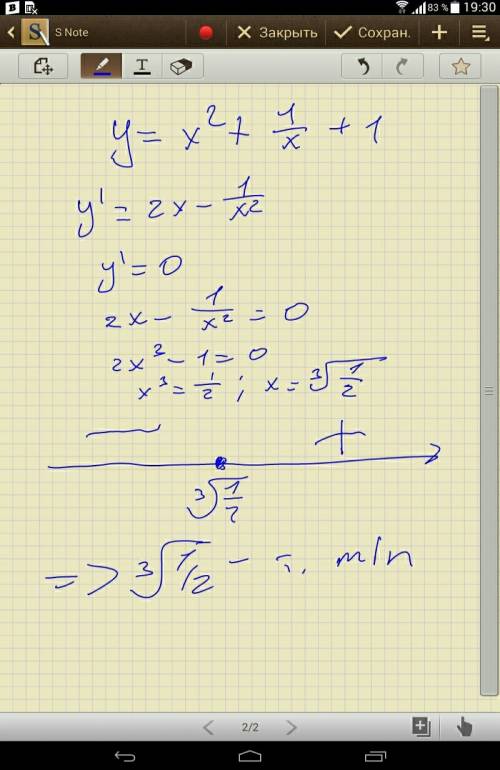 83 % 19:30
S Note Закрыть Сохран.
T
y = x² + 1/x + 1
y' = 2x - 1/x²
y' = 0
2x - 1/x² = 0
2x³ - 1 = 0
x³ = 1/2 ; x = ∛(1/2)
— +
∛(1/2)
=> ∛(1/2) - т. min
2/2